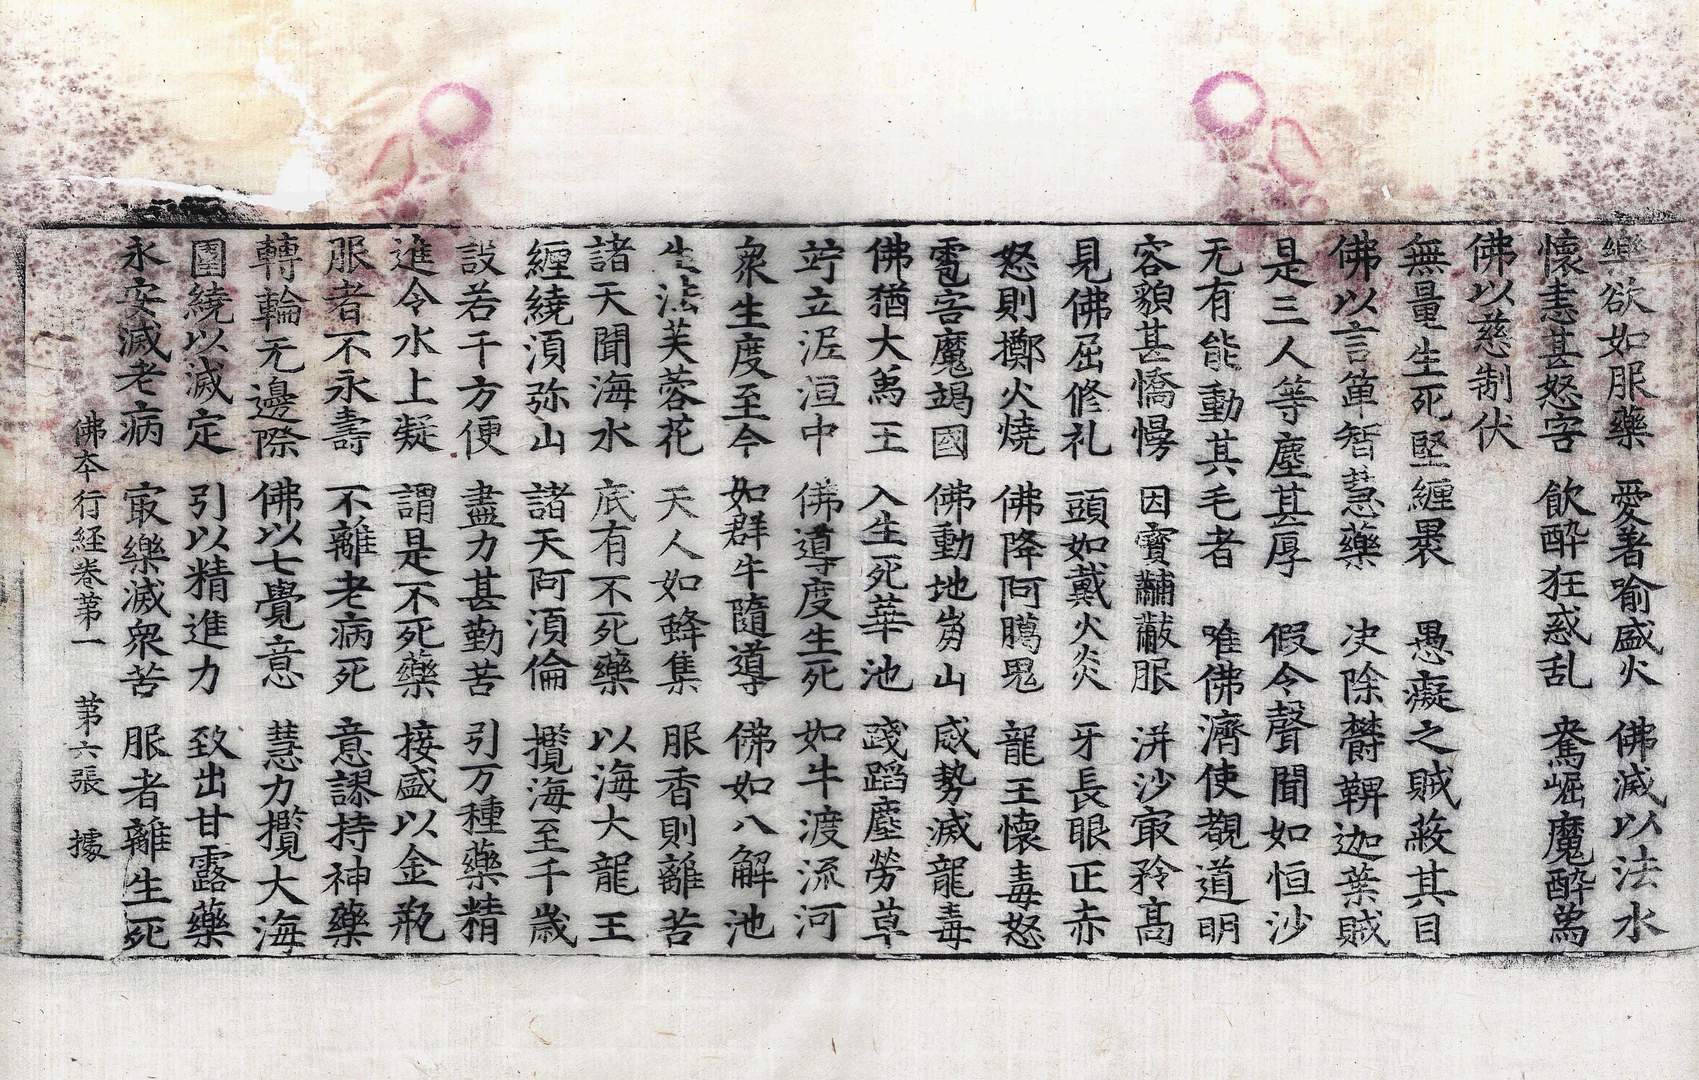 樂欲如服藥 愛著喻盛火 佛滅以法水
懷恚甚怒害 飲醉狂惑乱 鴦崛魔醉爲
佛以慈制伏
無量生死堅纏褁 愚癡之賊蔽其目
佛以言箄智慧藥 决除欝鞞迦葉賊
是三人等塵甚厚 假令聲聞如恒沙
无有能動其毛者 唯佛濟使覩道明
容貌甚憍慢 因寶黼黻服 洴沙冣矜高
見佛屈修礼 頭如戴火炎 牙長眼正赤
怒則擲火燒 佛降阿臈鬼 龍王懷毒怒
雹害魔竭國 佛動地崩山 感勢滅龍毒
佛猶大爲王 入生死華池 踐蹈塵勞草
竚立泥洹中 佛導度生死 如牛渡流河
衆生度至今 如群牛隨導 佛如八解池
生法芙蓉花 天人如蜂集 服香則離苦
諸天聞海水 底有不死藥 以海大龍王
纏繞湏弥山 諸天阿湏倫 攬海至千歲
設若干方便 盡力甚勤苦 引万種藥精
進令水上凝 謂是不死藥 接盛以金瓶
服者不永壽 不離老病死 意謬持神藥
轉輪无邊際 佛以七覺意 慧力攬大海
圍繞以滅定 引以精進力 致出甘露藥
永安滅老病 冣樂滅衆苦 服者離生死
佛夲行經卷第一 第六張 據